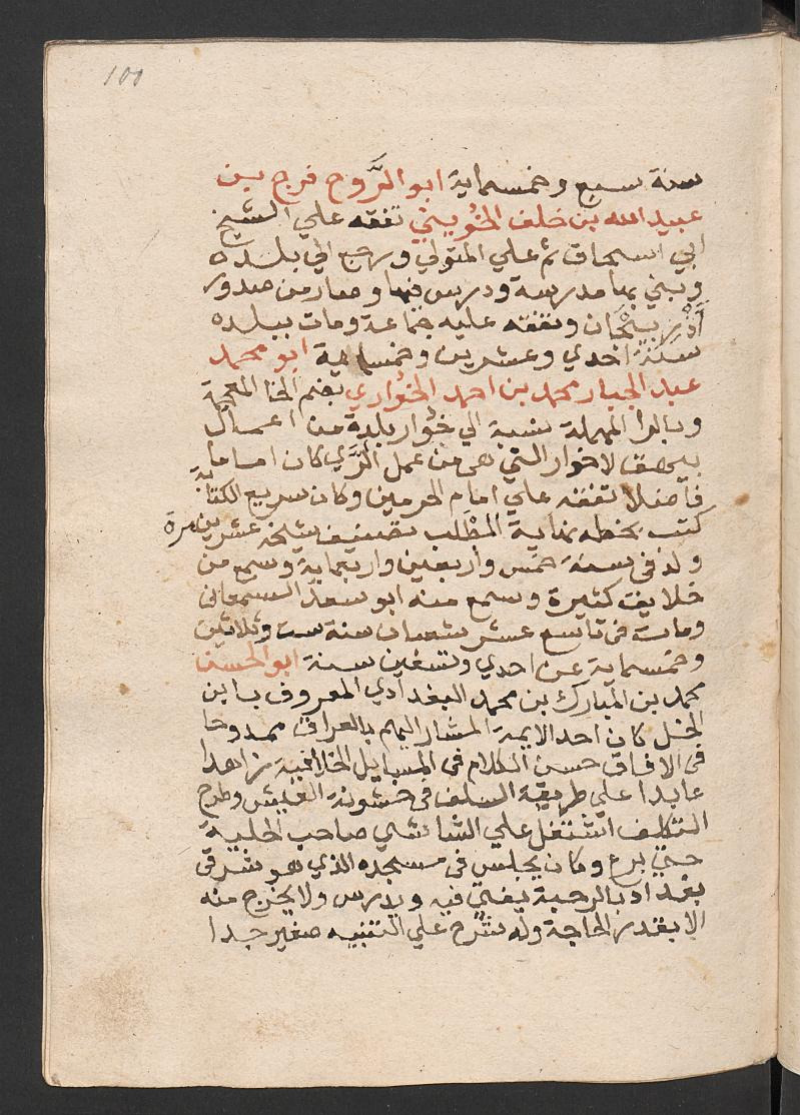 100
سنة سبع وخمسماية ابو الرَّوح فرج بن
عبيد الله بن خلف الخُويـني تفقه علي الشيخ
ابي اسحاق ثم علي المتولي ورجع الي بلده
وبني بها مدرسة ودرس فيها وصار من صدور
أَذْرَبيجَان وتفقه عليه جماعة ومات ببلده
سنة احدي وعشرين وخمسماية ابو محمد
عبد الجبار محمد بن احمد الخُواري بضم الخا المعجمة
وبالرا المهملة نسبة الي خُوار بلدة من اعمال
بيهق لاخوار التي هي من عمل الرَّي كان اماما
فاضلا تفقه علي امام الحرمين وكان سريع الكتابة
كتب بخطه نهاية المطلب تصنيف شيخه عشرين مرة
ولد في سنة خمس واربعين واربعماية وسمع من
خلايق كثيرة وسمع منه ابو سعد السمعاني
ومات في تاسع عشر شعبان سنة ست وثلاثين
وخمسماية عن احدي وتسعين سنة ابو الحسن
محمد بن المبارك بن محمد البغدادي المعروف بابن
الخل كان احد الايمة المشار اليهم بالعراق ممدوحا
في الافاق حسن الكلام في المسايل الخلافية زاهدا
عابدا علي طريقة السلف في خشونة العيش وطرح
التكلف اشتغل علي الشاشي صاحب الحلية
حتي برع وكان يجلس في مسجده الذي هو شرقي
بغداد بالرحبة يفتي فيه ويدرس ولا يخرج منه
الا بقدر الحاجة وله شرح علي التنبيه صغير جدا